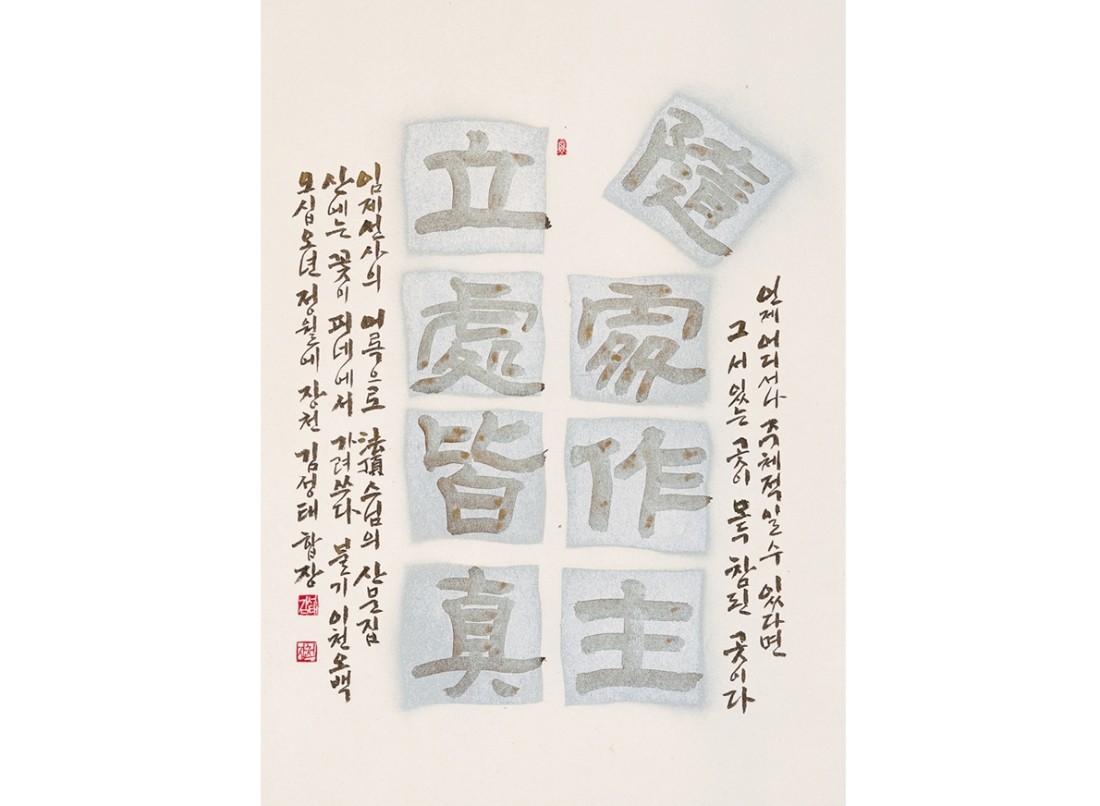 언제 어디서나 주체적일 수 있다면
그 서있는 곳이 모두 참된 곳이다
隨處作主
立處皆真
임제선사의 어록으로 法頂스님의 산문집
산에는 꽃이 피네에서 가려쓰다 불기 이천오백
오십오년 정월에 장천 김성태 합장